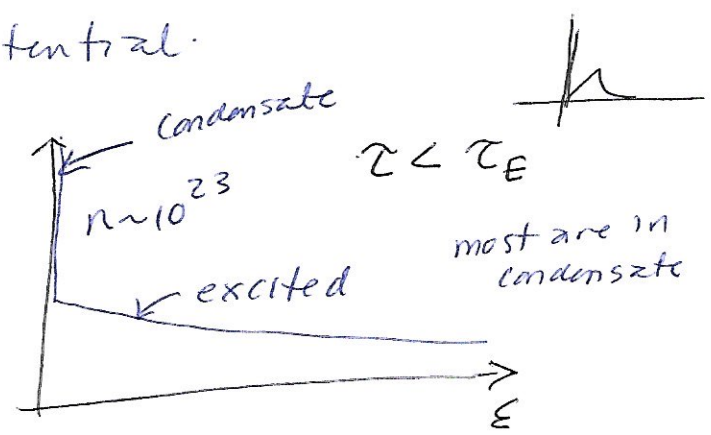 tential.
condensate
τ < τ_E
n~10^23
most are in
condensate
excited
ε